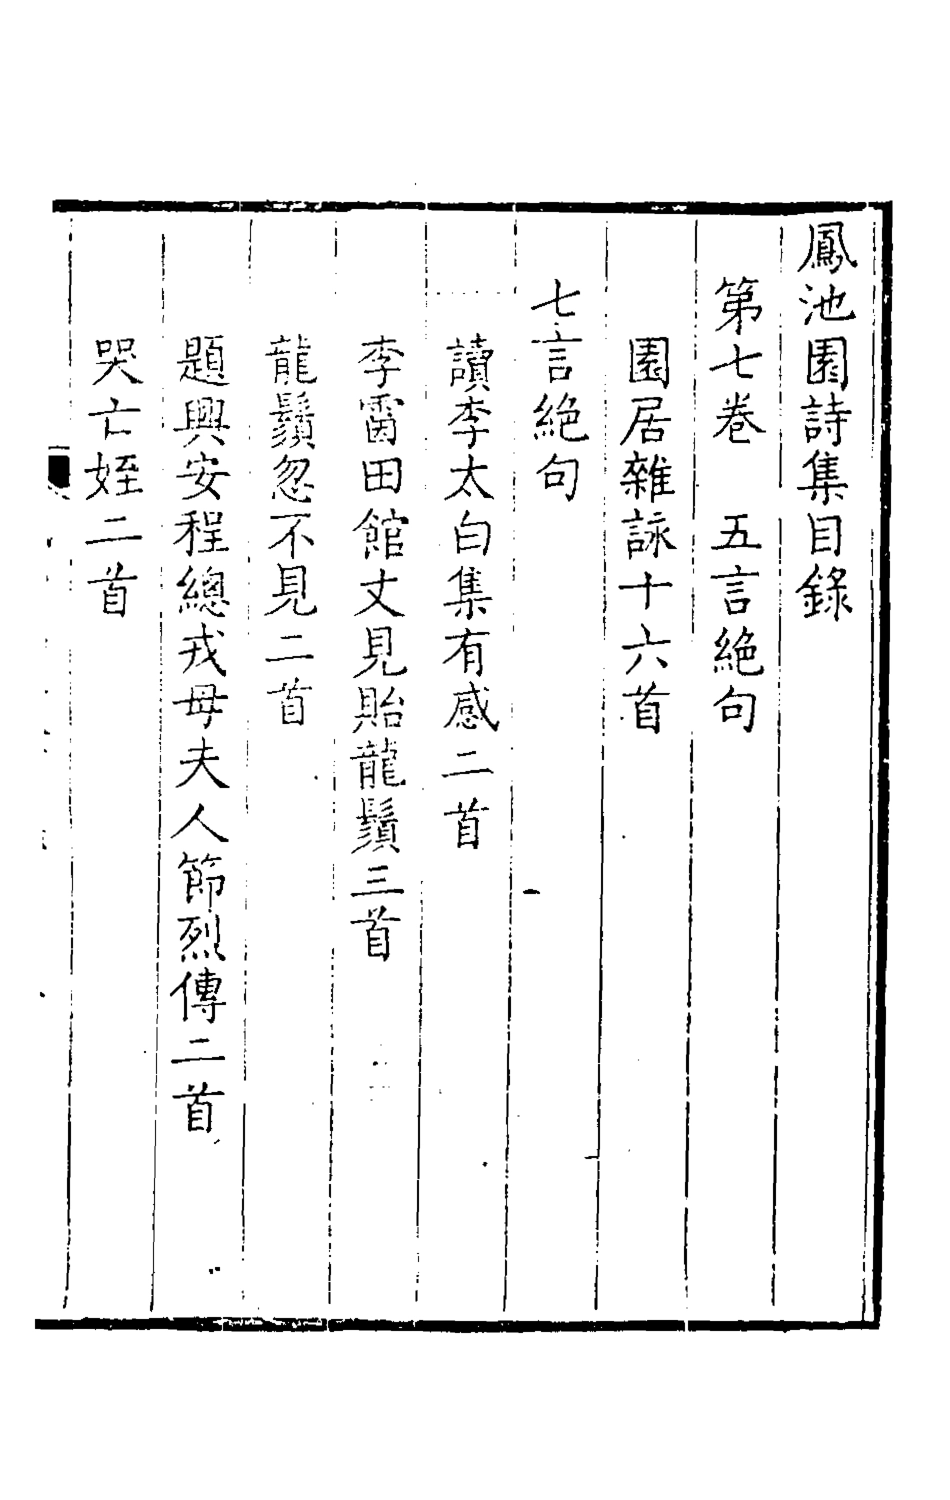 鳳池園詩集目錄
第七卷　五言絶句
園居雜詠十六首
七言絶句
讀李太白集有感二首
李㽞田館丈見貽龍鬚三首
龍鬚忽不見二首
題興安程總戎母夫人節烈傳二首
哭亡姪二首